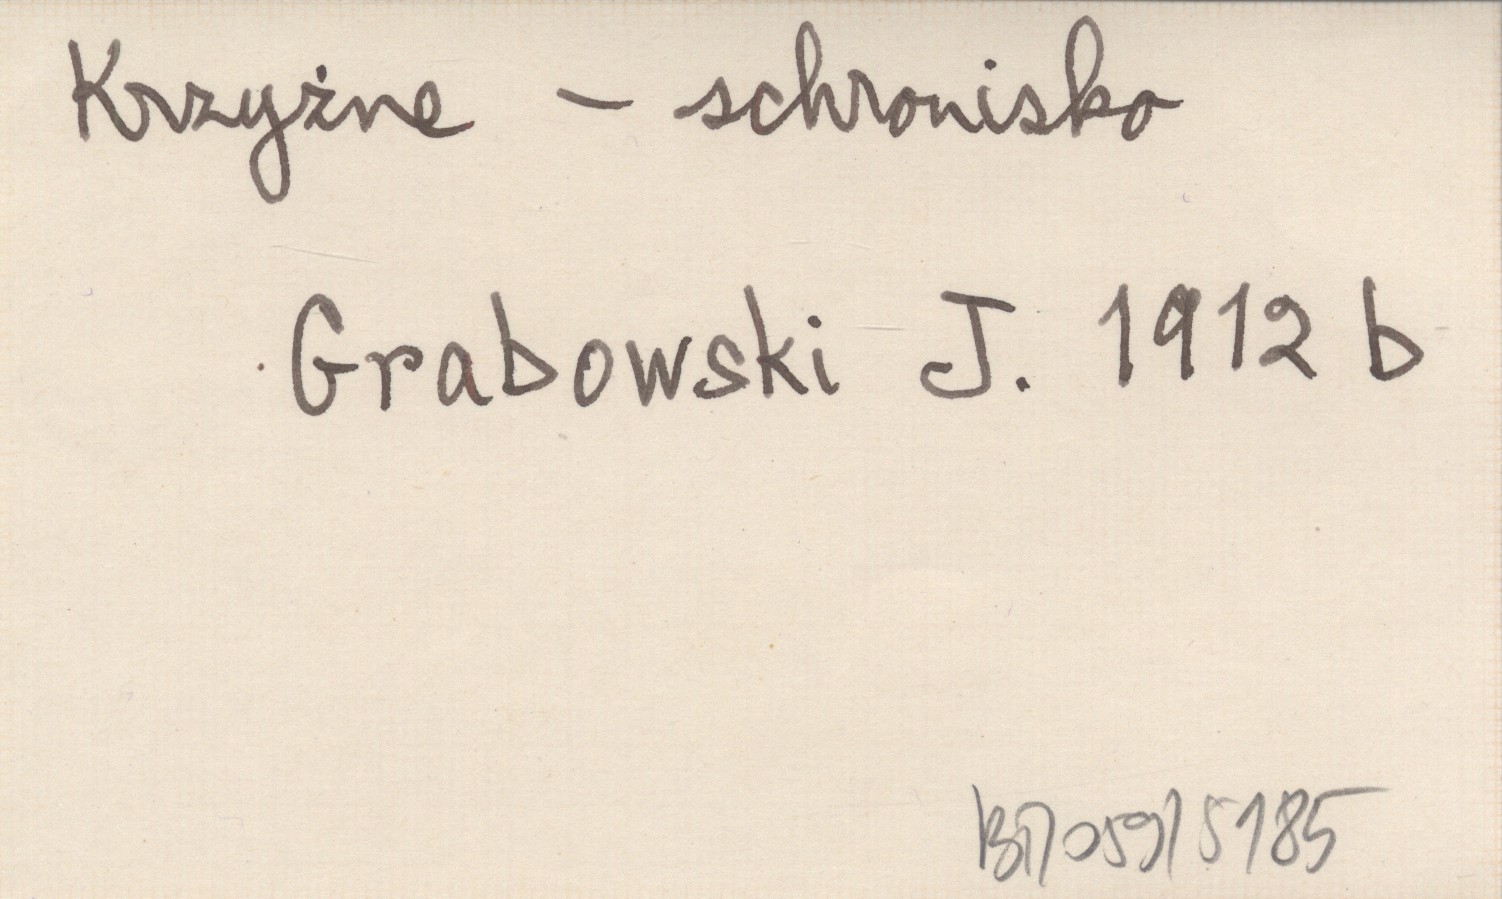 Krzyżne – schronisko
Grabowski J. 1912 b